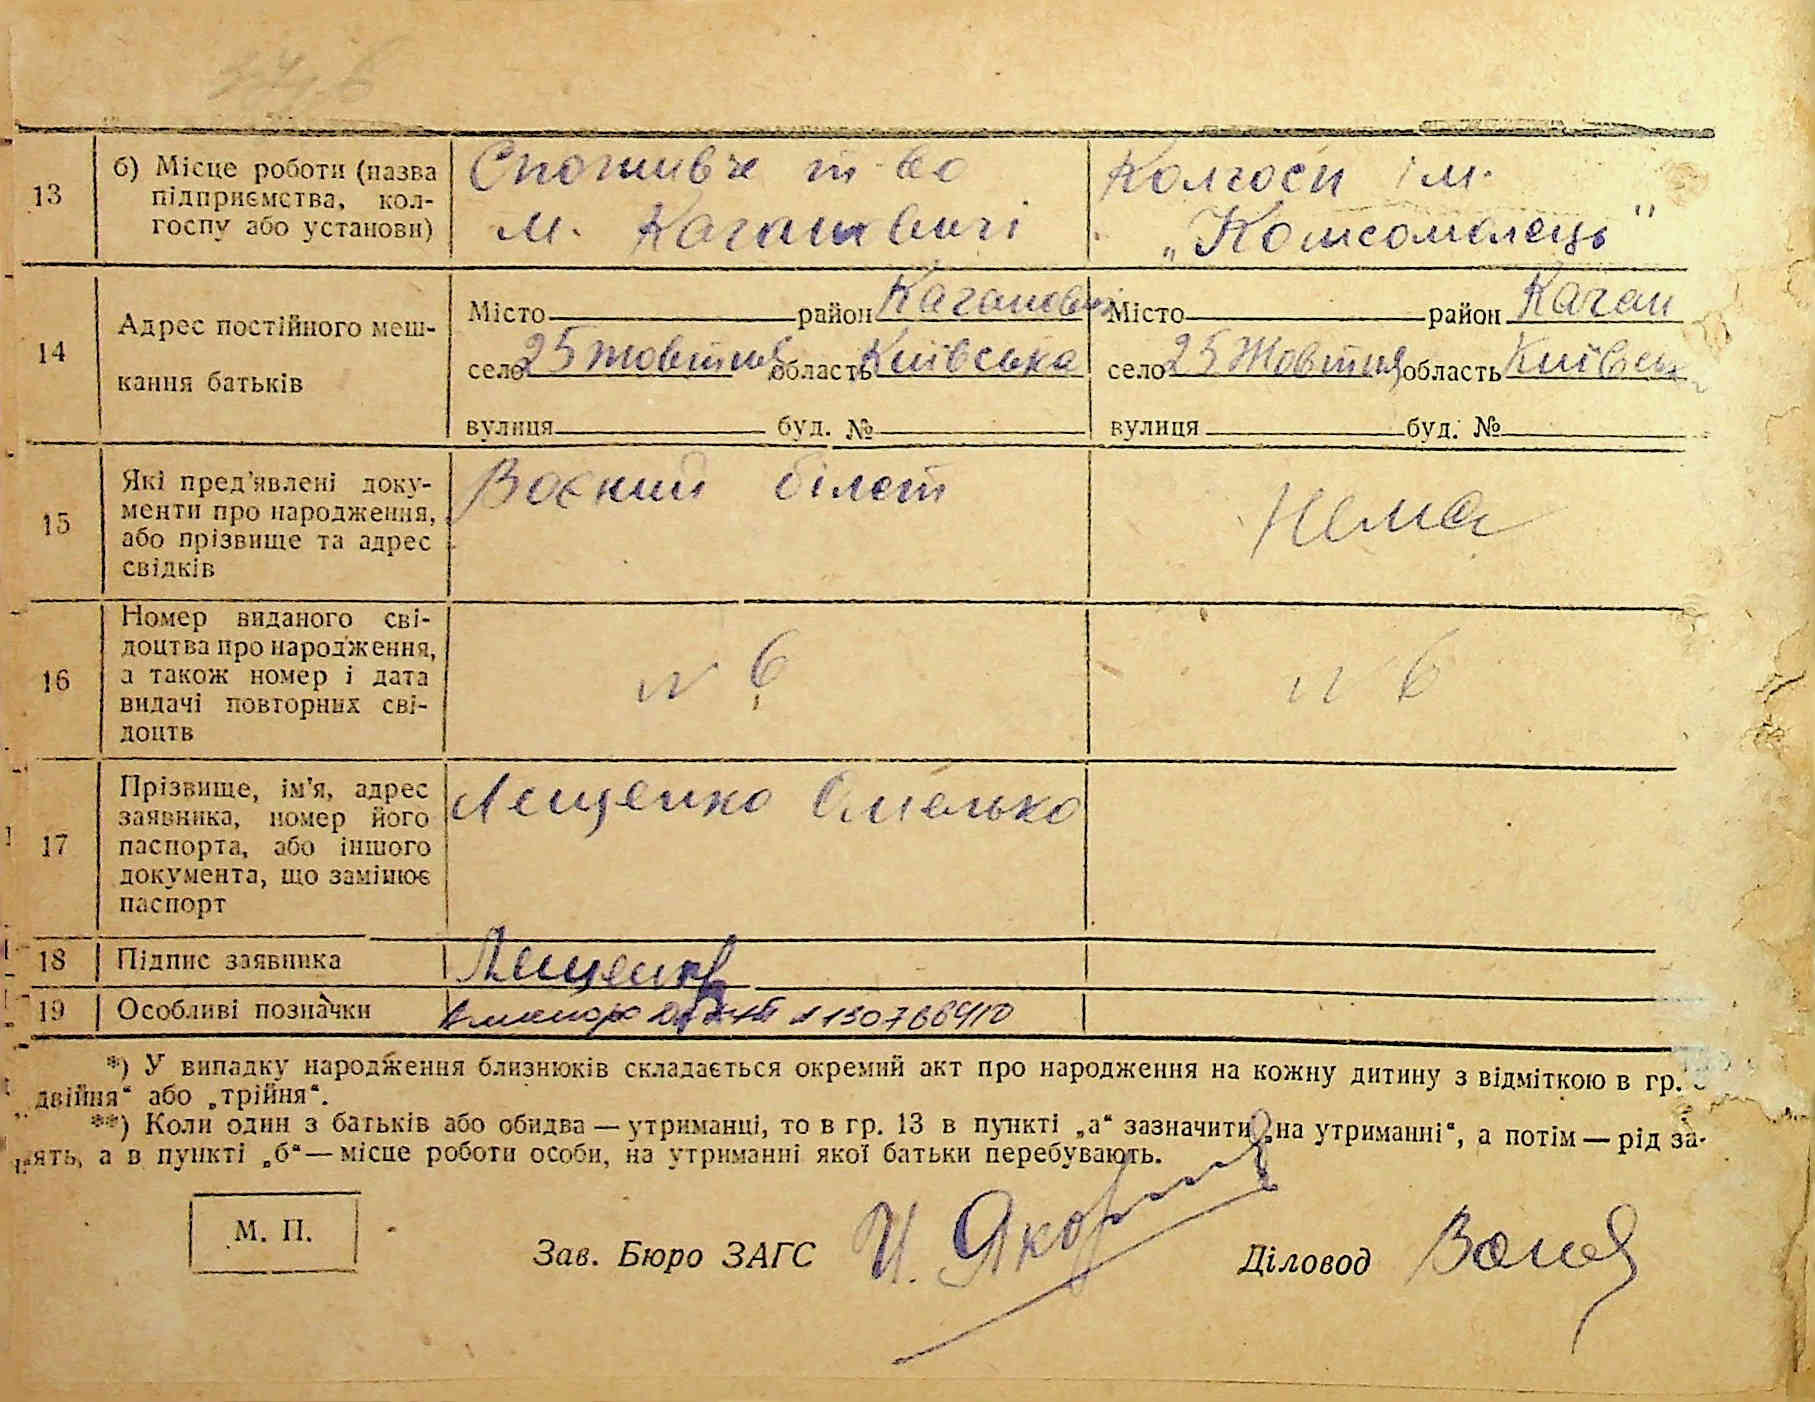 13
б) Місце роботи (назва
підприємства, кол-
госпу або установи)
Споживче т-во
м. Кагановичі
Колгосп ім.
„Комсомолець"
14
Адрес постійного меш-
кання батьків
Місто район Каганович
село 25 Жовтня область Київська
вулиця буд. №
Місто район Каган
село 25 Жовтня область Київськ
вулиця буд. №
15
Які пред'явлені доку-
менти про народження,
або прізвище та адрес
свідків
Воєний білет
Нема
16
Номер виданого сві-
доцтва про народження,
а також номер і дата
видачі повторних сві-
доцтв
№ 6
№ 6
17
Прізвище, ім'я, адрес
заявника, номер його
паспорта, або іншого
документа, що замінює
паспорт
Лещенко Омелько
18
Підпис заявника
Лещенко
19
Особливі позначки
*) У випадку народження близнюків складається окремий акт про народження на кожну дитину з відміткою в гр.
двійня“ або „трійня“.
**) Коли один з батьків або обидва — утриманці, то в гр. 13 в пункті „а“ зазначити „на утриманні“, а потім — рід за-
нять, а в пункті „б“ — місце роботи особи, на утриманні якої батьки перебувають.
М. П.
Зав. Бюро ЗАГС
Діловод